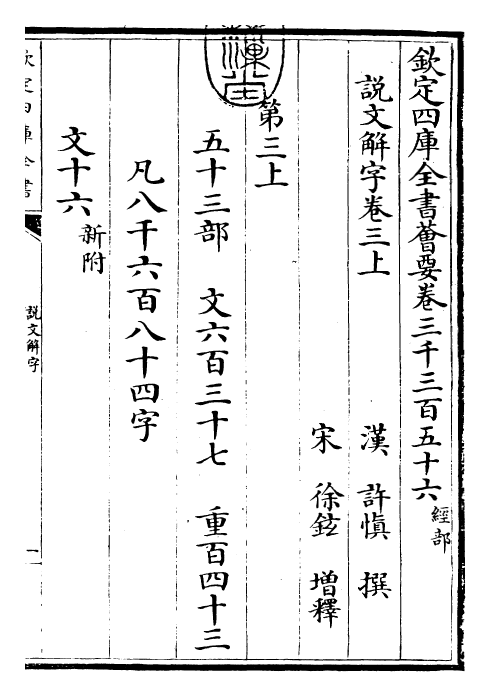 欽定四庫全書薈要卷三千三百五十六 經部
説文解字卷三上
漢 許慎 撰
宋 徐鉉 增釋
第三上
五十三部 文六百三十七 重百四十三
凡八千六百八十四字
文十六 新附
欽定四庫全書
説文解字
一